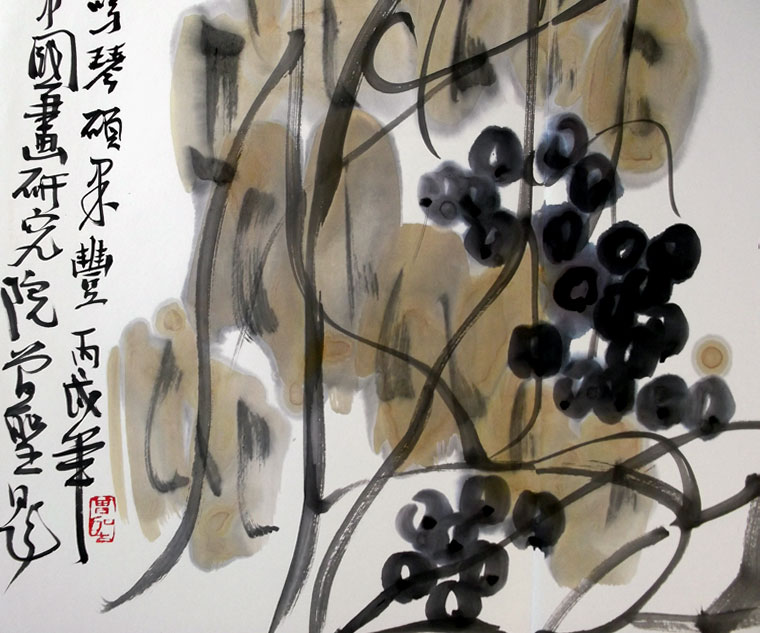 琴碩果豐 丙戌年
中國畫研究院曾聖題